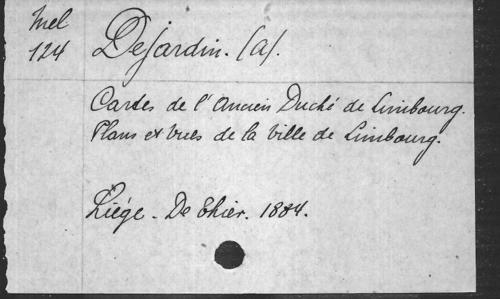 Mel
124
Dejardin. (A).
Cartes de l'Ancien Duché de Limbourg.
Plans et Vues de la Ville de Limbourg.
Liége. De Thier. 1884.